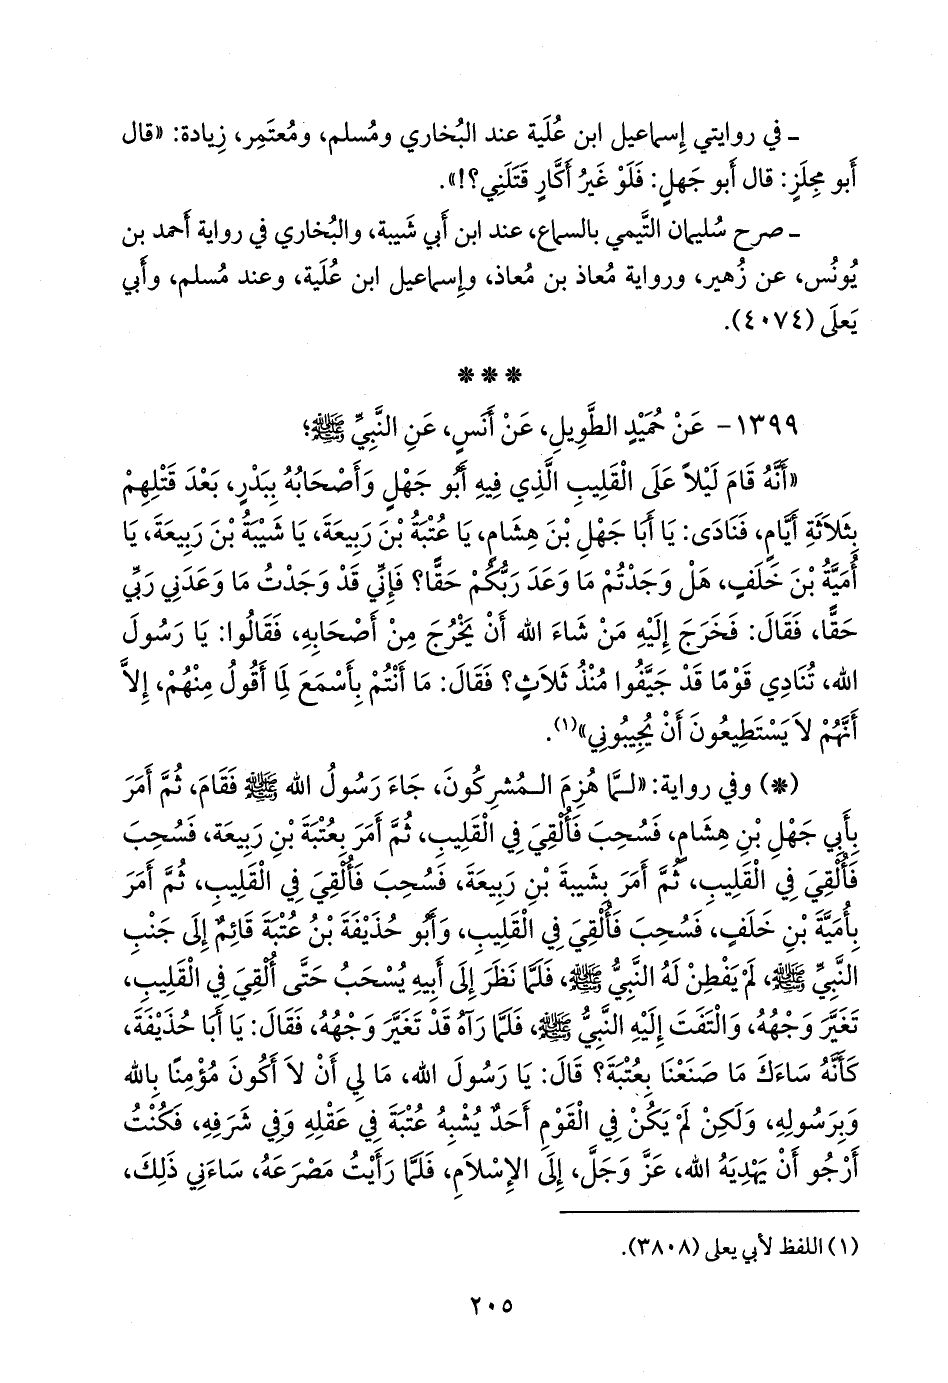 ـ في روايتي إسماعيل ابن عُلَية عند البُخاري ومُسلم، ومُعتَمِر، زِيادة: «قال
أَبو مِجلَزٍ: قال أَبو جَهلٍ: فَلَوْ غَيرُ أَكَّارٍ قَتَلَنِي؟!».
ـ صرح سُليمان التَّيمي بالسماع، عند ابن أَبي شَيبة، والبُخاري في رواية أَحمد بن
يُونُس، عن زُهير، ورواية مُعاذ بن مُعاذ، وإِسماعيل ابن عُلَية، وعند مُسلم، وأَبي
يَعلَى (٤٠٧٤).
* * *
١٣٩٩- عَنْ حُمَيْدٍ الطَّوِيلِ، عَنْ أَنَسٍ، عَنِ النَّبِيِّ ﷺ؛
«أَنَّهُ قَامَ لَيْلاً عَلَى الْقَلِيبِ الَّذِي فِيهِ أَبُو جَهْلٍ وَأَصْحَابُهُ بِبَدْرٍ، بَعْدَ قَتْلِهِمْ
بِثَلاَثَةِ أَيَّامٍ، فَنَادَى: يَا أَبَا جَهْلِ بْنَ هِشَامٍ، يَا عُتْبَةُ بْنَ رَبِيعَةَ، يَا شَيْبَةُ بْنَ رَبِيعَةَ، يَا
أُمَيَّةُ بْنَ خَلَفٍ، هَلْ وَجَدْتُمْ مَا وَعَدَ رَبُّكُمْ حَقًّا؟ فَإِنِّي قَدْ وَجَدْتُ مَا وَعَدَنِي رَبِّي
حَقًّا، فَقَالَ: فَخَرَجَ إِلَيْهِ مَنْ شَاءَ الله أَنْ يَخْرُجَ مِنْ أَصْحَابِهِ، فَقَالُوا: يَا رَسُولَ
الله، تُنَادِي قَوْمًا قَدْ جَيَّفُوا مُنْذُ ثَلاَثٍ؟ فَقَالَ: مَا أَنْتُمْ بِأَسْمَعَ لِمَا أَقُولُ مِنْهُمْ، إِلاَّ
أَنَّهُمْ لاَ يَسْتَطِيعُونَ أَنْ يُجِيبُونِي»(١).
(*) وفي رواية: «لَـمَّا هُزِمَ الـمُشرِكُونَ، جَاءَ رَسُولُ الله ﷺ فَقَامَ، ثُمَّ أَمَرَ
بِأَبِي جَهْلِ بْنِ هِشَامٍ، فَسُحِبَ فَأُلْقِيَ فِي الْقَلِيبِ، ثُمَّ أَمَرَ بِعُتْبَةَ بْنِ رَبِيعَةَ، فَسُحِبَ
فَأُلْقِيَ فِي الْقَلِيبِ، ثُمَّ أَمَرَ بِشَيبةَ بْنِ رَبِيعَةَ، فَسُحِبَ فَأُلْقِيَ فِي الْقَلِيبِ، ثُمَّ أَمَرَ
بِأُمَيَّةَ بْنِ خَلَفٍ، فَسُحِبَ فَأُلْقِيَ فِي الْقَلِيبِ، وَأَبُو حُذَيْفَةَ بْنُ عُتْبَةَ قَائِمٌ إِلَى جَنْبِ
النَّبِيِّ ﷺ، لَمْ يَفْطِنْ لَهُ النَّبِيُّ ﷺ، فَلَمَّا نَظَرَ إِلَى أَبِيهِ يُسْحَبُ حَتَّى أُلْقِيَ فِي الْقَلِيبِ،
تَغَيَّرَ وَجْهُهُ، وَالْتَفَتَ إِلَيْهِ النَّبِيُّ ﷺ، فَلَمَّا رَآهُ قَدْ تَغَيَّرَ وَجْهُهُ، فَقَالَ: يَا أَبَا حُذَيْفَةَ،
كَأَنَّهُ سَاءَكَ مَا صَنَعْنَا بِعُتْبَةَ؟ قَالَ: يَا رَسُولَ الله، مَا لِي أَنْ لاَ أَكُونَ مُؤْمِنًا بِالله
وَبِرَسُولِهِ، وَلَكِنْ لَمْ يَكُنْ فِي الْقَوْمِ أَحَدٌ يُشْبِهُ عُتْبَةَ فِي عَقْلِهِ وَفِي شَرَفِهِ، فَكُنْتُ
أَرْجُو أَنْ يَهْدِيَهُ الله، عَزَّ وَجَلَّ، إِلَى الإِسْلاَمِ، فَلَمَّا رَأَيْتُ مَصْرَعَهُ، سَاءَنِي ذَلِكَ،
(١) اللفظ لأبي يعلى (٣٨٠٨).
٢٠٥